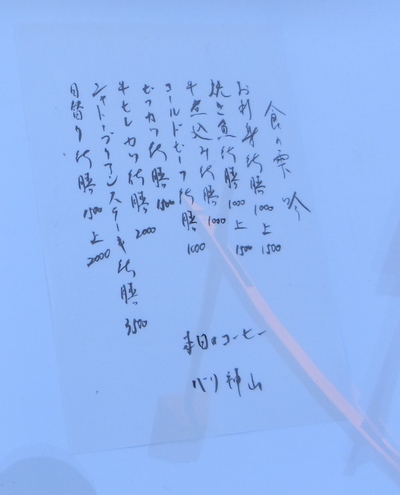 食の雫 吟
お刺身御膳 1000 上 1500
焼き魚御膳 1000 上 1500
牛煮込み御膳 1000
コールドビーフ御膳 1000
ビフカツ御膳 1500
牛ヒレカツ御膳 2000
シャトーブリアンステーキ御膳 3500
日替り御膳 1500 上 2000
本日のコーヒー
バリ神山